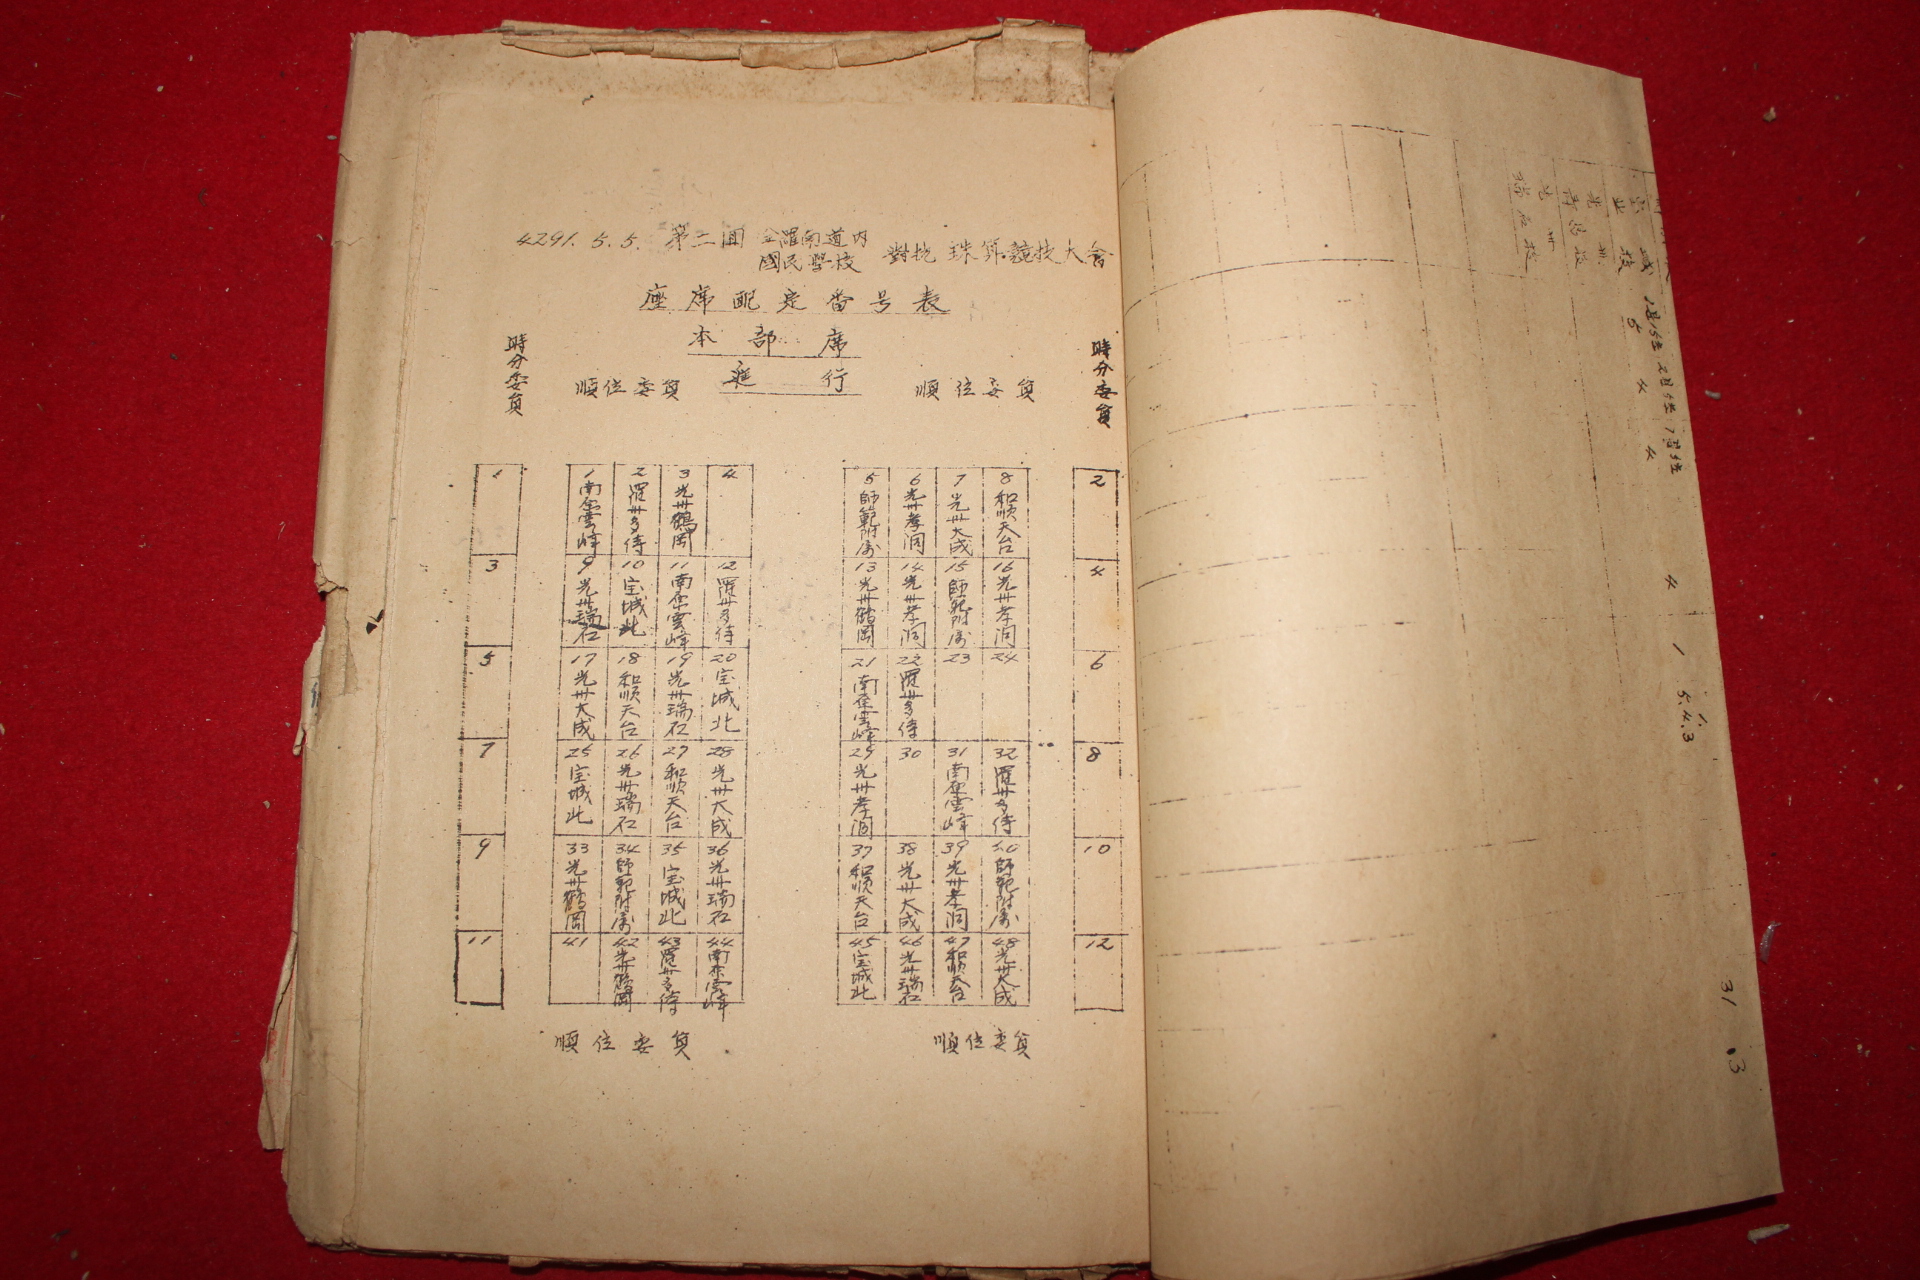 4291. 5. 5. 第二回 全羅南道内 國民學校 對抗 珠算競技大會
座席配定番号表
本部席
進行
時分委員
順位委員
順位委員
時分委員
1
1 南原雲峰
2 羅州多侍
3 光州鶴岡
4
5 師範附属
6 光州孝洞
7 光州大成
8 和順天台
2
3
9 光州瑞石
10 宝城北
11 南原雲峰
12 羅州多侍
13 光州鶴岡
14 光州孝洞
15 師範附属
16 光州孝洞
4
5
17 光州大成
18 和順天台
19 光州瑞石
20 宝城北
21 南原雲峰
22 羅州多侍
23
24
6
7
25 宝城北
26 光州瑞石
27 和順天台
28 光州大成
29 光州孝洞
30
31 南原雲峰
32 羅州多侍
8
9
33 光州鶴岡
34 師範附属
35 宝城北
36 光州瑞石
37 和順天台
38 光州大成
39 光州孝洞
40 師範附属
10
11
41
42 光州鶴岡
43 羅州多侍
44 南原雲峰
45 宝城北
46 光州瑞石
47 和順天台
48 光州大成
12
順位委員
順位委員